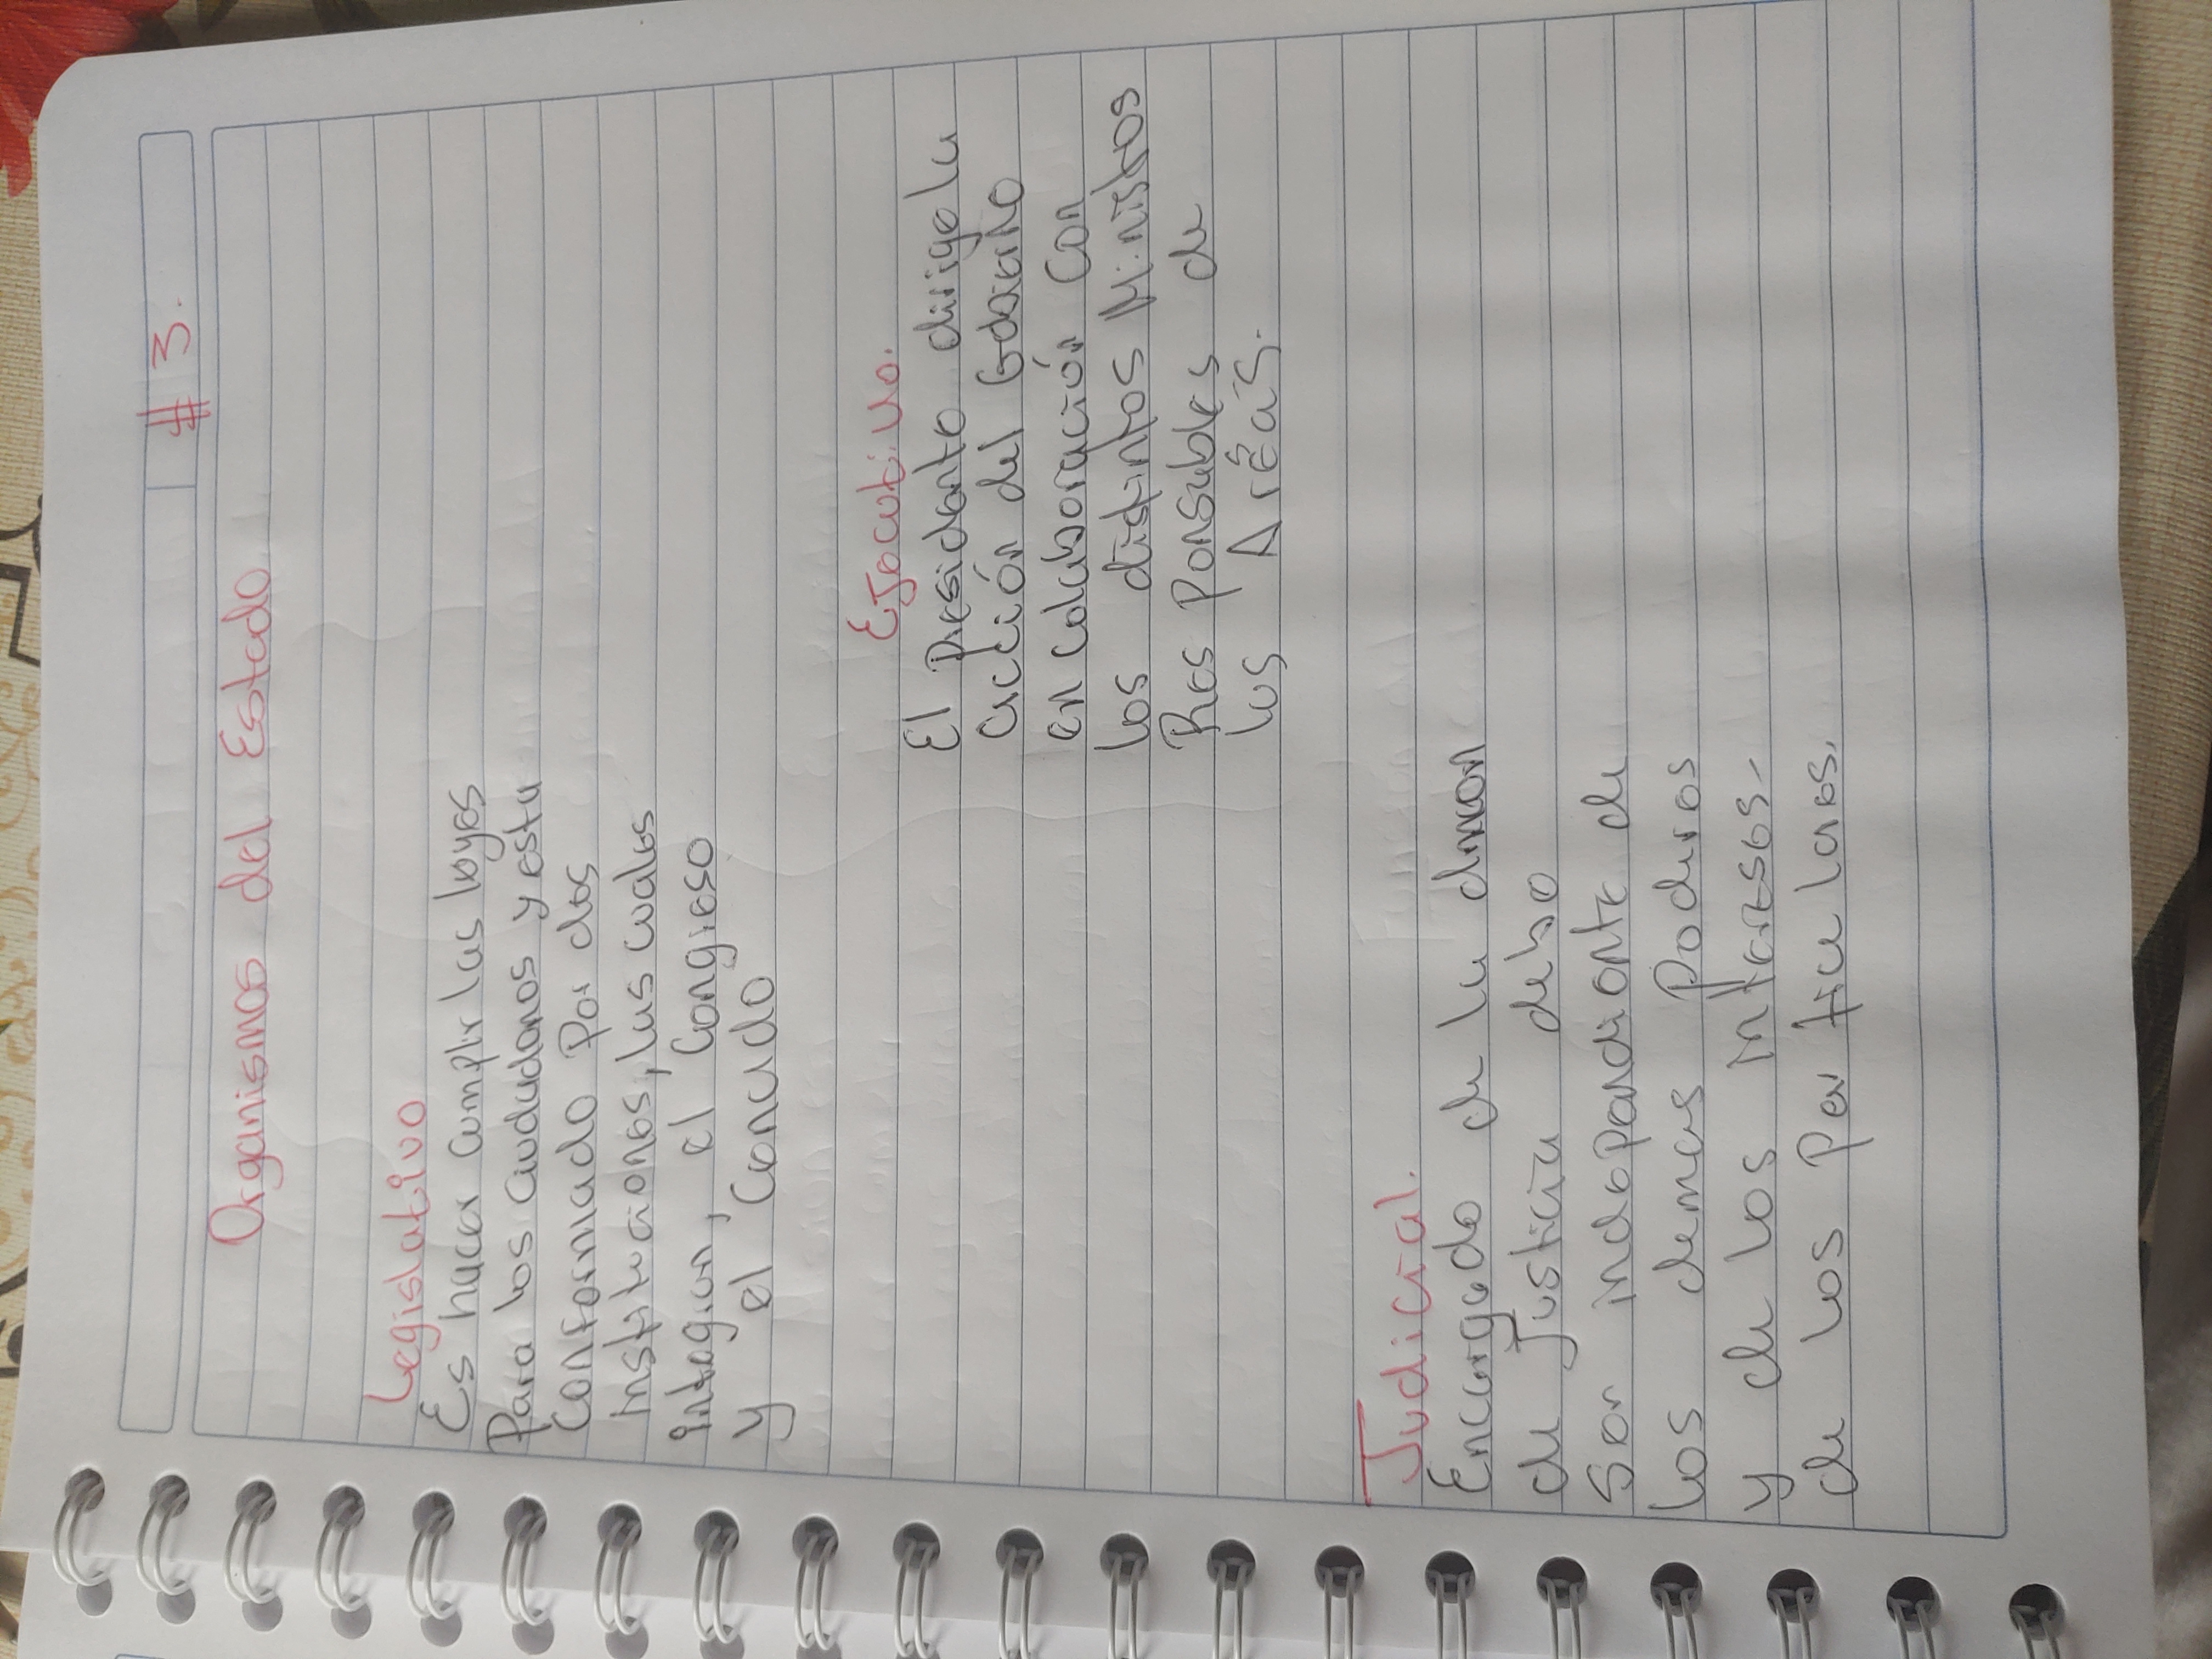 # 3.
Organismos del Estado
Legislativo
Es hacer cumplir las leyes
Para los ciudadanos y esta
conformado Por dos
instituciones, las cuales
integran, el Congreso
y el
Ejecutivo.
El Presidente dirige la
acción del Gobierno
en colaboración con
los distintos Ministros
Res Ponsables de
las Aréas.
Judicial.
Encargado de la
de Justicia debe
Ser independiente de
los demas Poderes
y de los intereses-
de los Par ticulares.